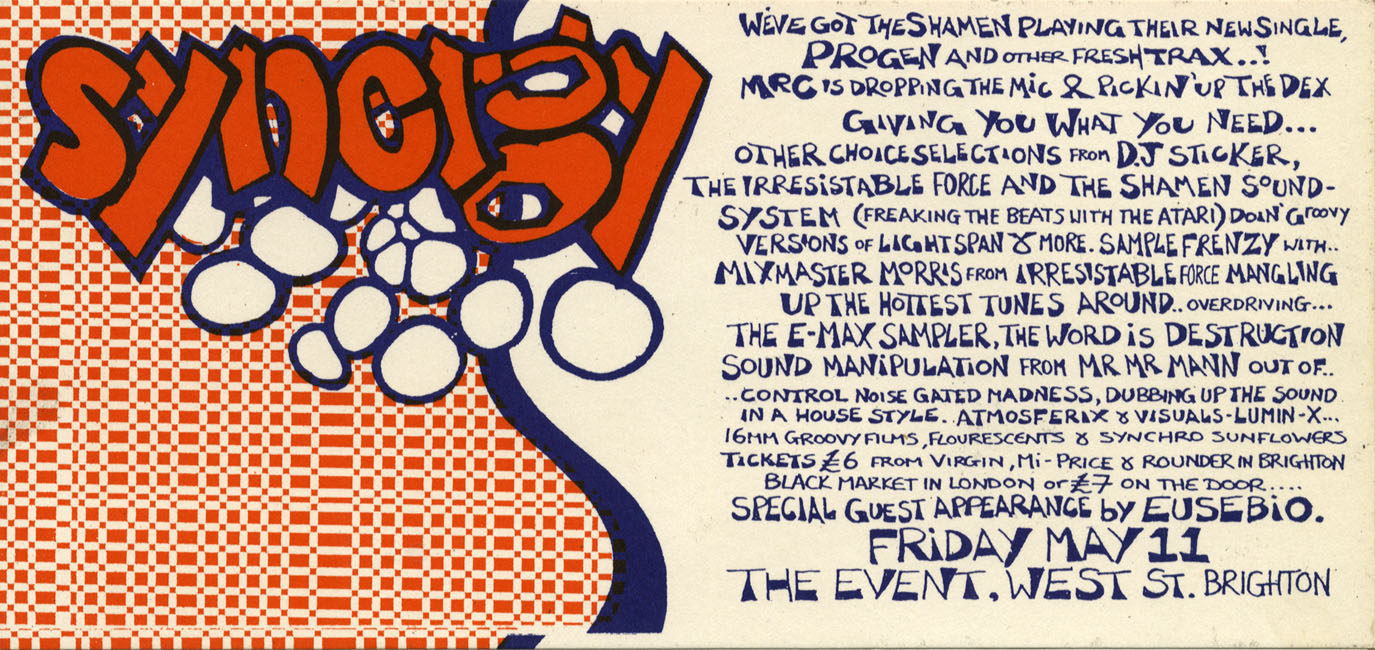 SYNERGY
WE'VE GOT THE SHAMEN PLAYING THEIR NEW SINGLE,
PROGEN AND OTHER FRESH TRAX..!
MRC IS DROPPING THE MIC & PICKIN' UP THE DEX
GIVING YOU WHAT YOU NEED...
OTHER CHOICE SELECTIONS FROM D.J STICKER,
THE IRRESISTABLE FORCE AND THE SHAMEN SOUND-
SYSTEM (FREAKING THE BEATS WITH THE ATARI) DOIN' GROOVY
VERSIONS OF LIGHTSPAN & MORE. SAMPLE FRENZY WITH..
MIXMASTER MORRIS FROM IRRESISTABLE FORCE MANGLING
UP THE HOTTEST TUNES AROUND.. OVERDRIVING...
THE E-MAX SAMPLER, THE WORD IS DESTRUCTION
SOUND MANIPULATION FROM MR MR MANN OUT OF..
..CONTROL NOISE GATED MADNESS, DUBBING UP THE SOUND
IN A HOUSE STYLE.. ATMOSFERIX & VISUALS-LUMIN-X...
16MM GROOVY FILMS, FLOURESCENTS & SYNCHRO SUNFLOWERS
TICKETS £6 FROM VIRGIN, MI-PRICE & ROUNDER IN BRIGHTON
BLACK MARKET IN LONDON OR £7 ON THE DOOR....
SPECIAL GUEST APPEARANCE by EUSEBIO.
FRIDAY MAY 11
THE EVENT. WEST ST. BRIGHTON